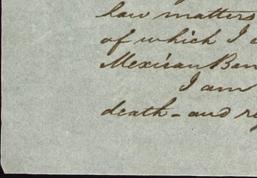 law matters
of which I
Mexican Ban
I am
death - and re